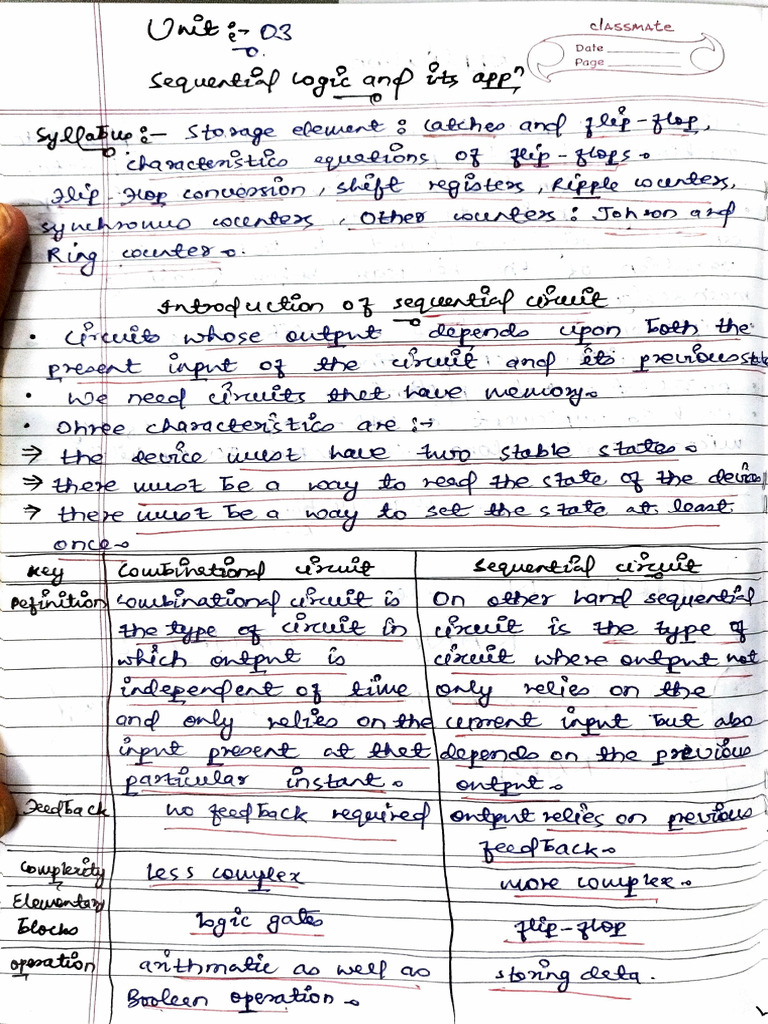 Unit :- 03
classmate
Date
Page
Sequential Logic and its appn
Syllabus :- Storage element : Latches and flip-flop,
characteristics equations of flip-flops.
Flip-Flop conversion, shift registers, Ripple counters,
synchronus counters, Other counters : Johson and
Ring counter.
Introduction of sequential circuit
• Circuits whose output depends upon both the
present input of the circuit and its previous state
• We need circuits that have memory.
• Three characteristics are :-
→ the device must have two stable states.
→ there must be a way to read the state of the device
→ there must be a way to set the state at least
once.
Key Combinational circuit Sequential circuit
Definition Combinational circuit is On other hand sequential
the type of circuit in circuit is the type of
which output is circuit where output not
independent of time only relies on the
and only relies on the current input but also
input present at that depends on the previous
particular instant. output.
Feedback no feedback required output relies on previous
feedback.
Complexity Less complex more complex.
Elementary
blocks Logic gates flip-flop
operation arithmatic as well as storing data.
Boolean operation.